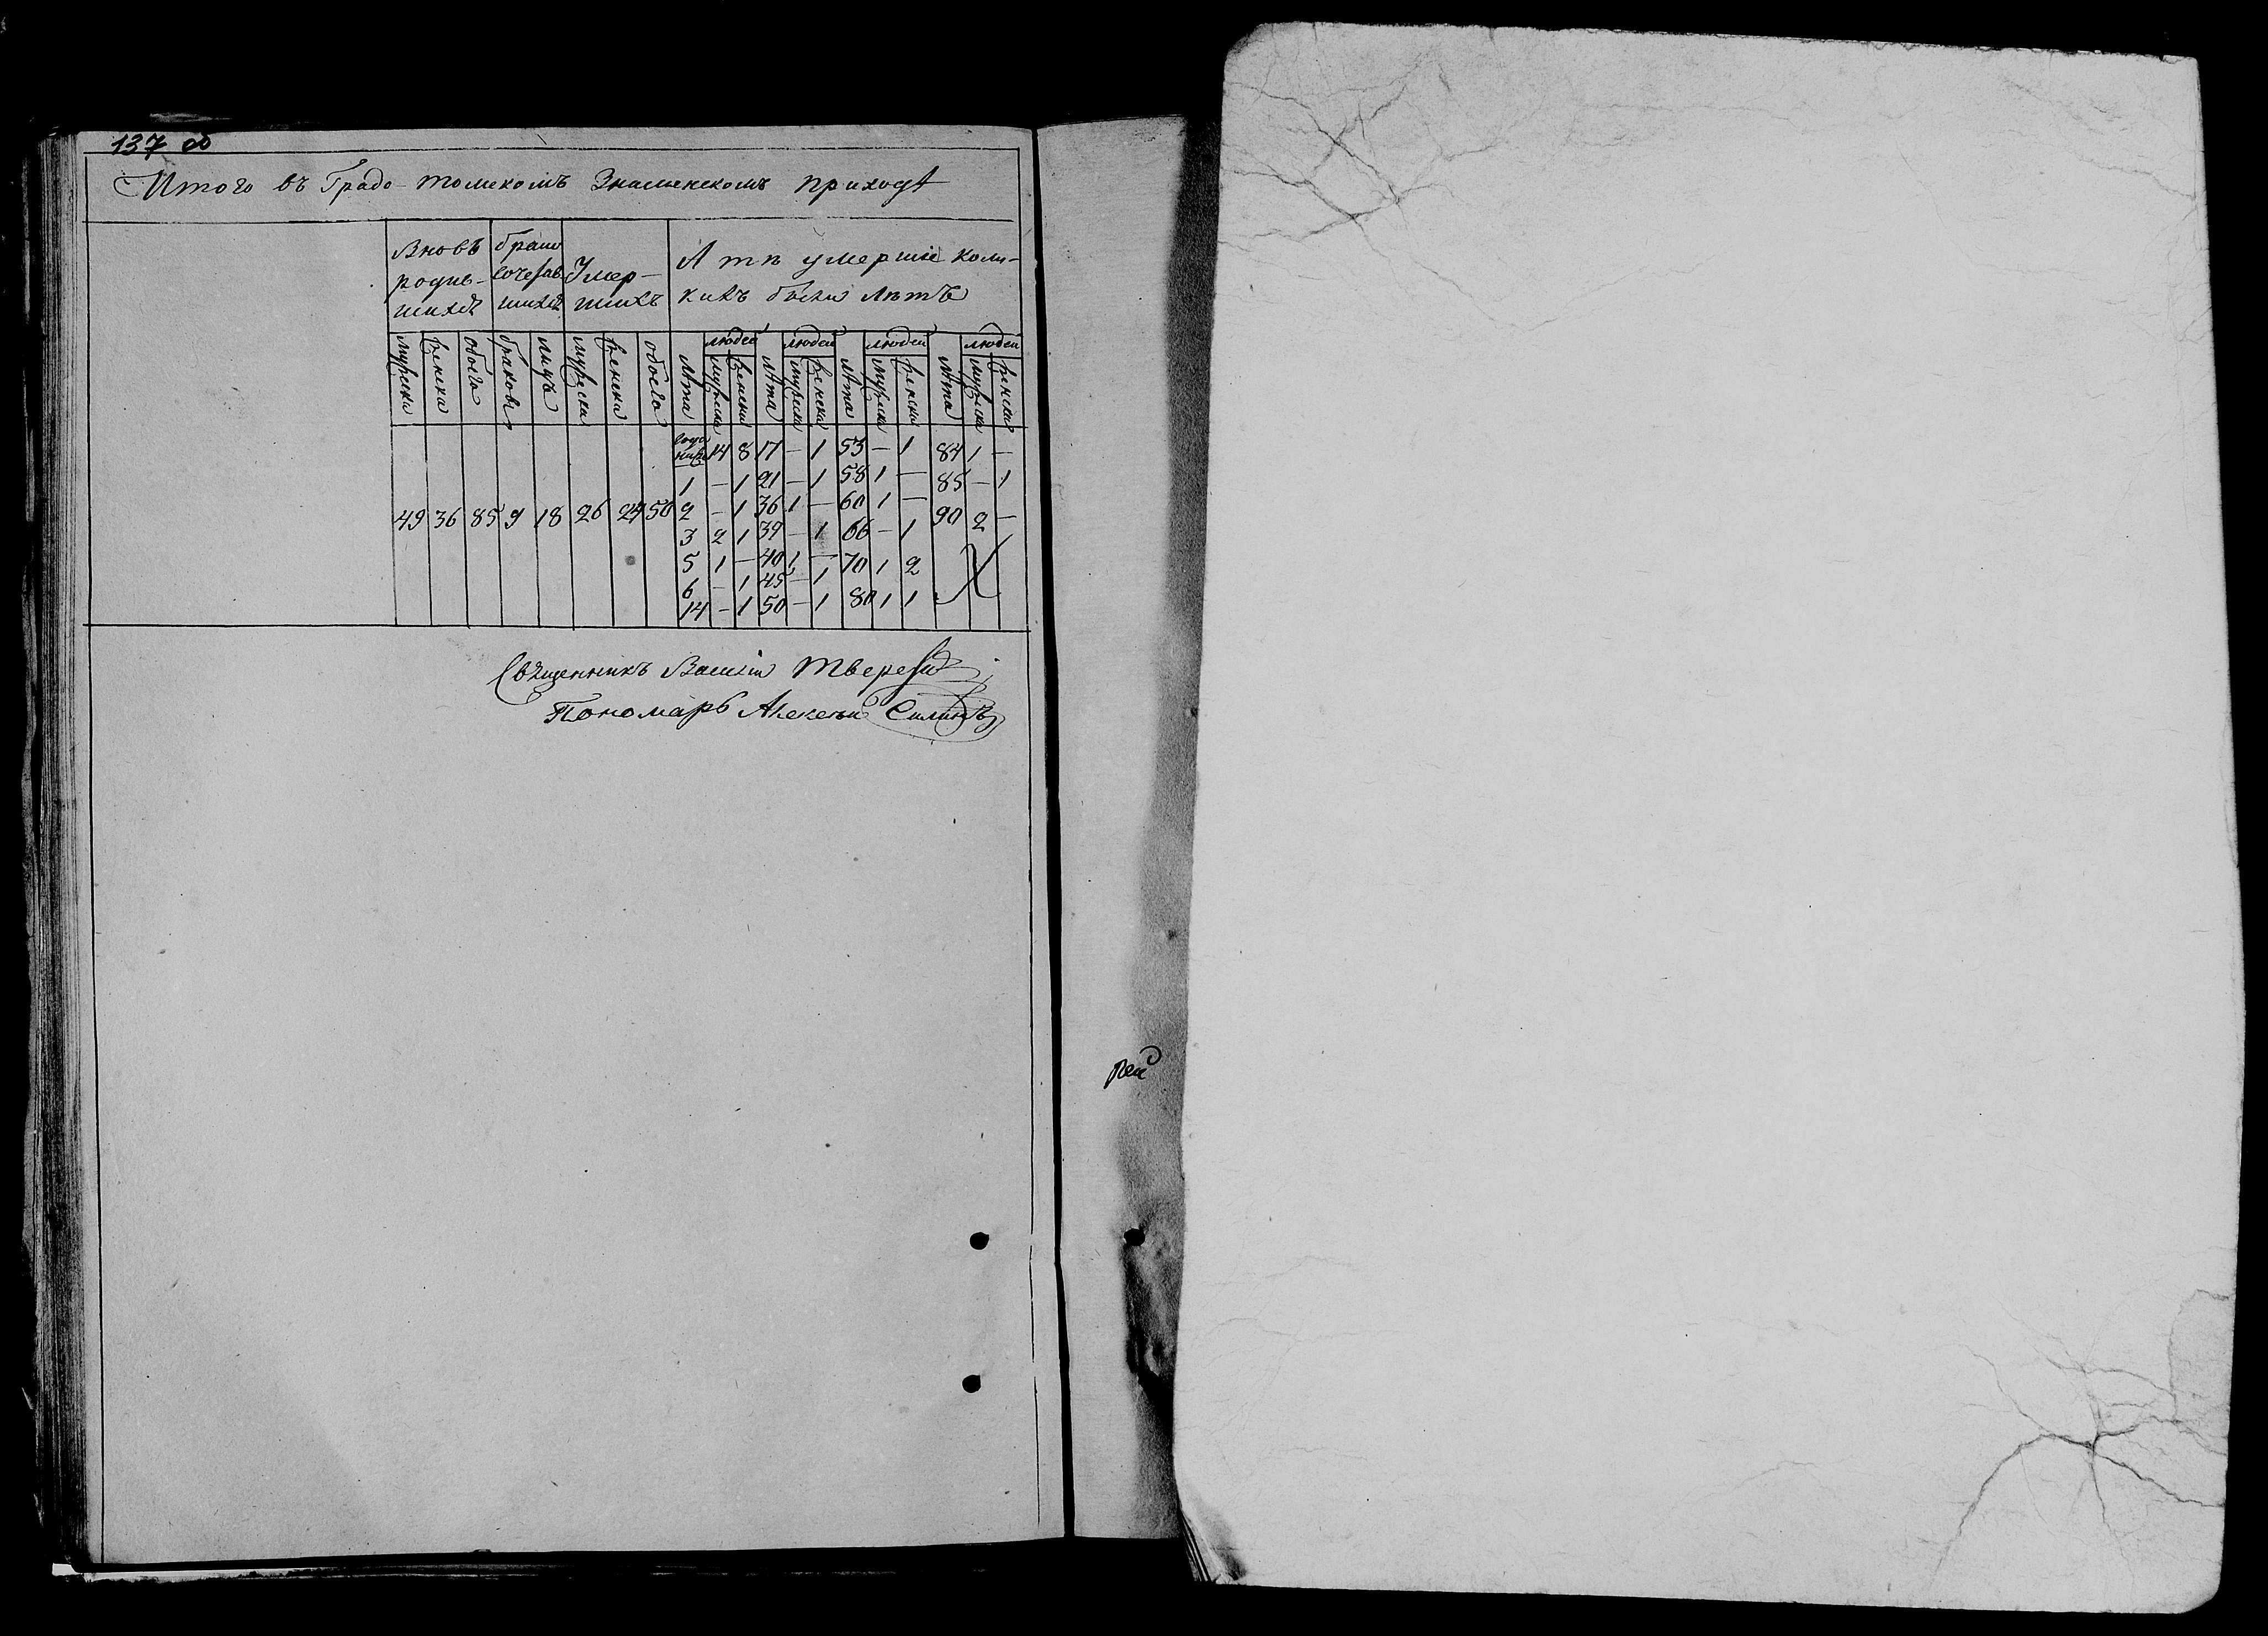 137 об
Итого въ Градо-томскомъ Знаменскомъ приходѣ
Вновь родив-шихся | брако сочетав шихся | Умер-шихъ | А тѣ умершіе коли-кихъ были лѣтъ
людей | людей | людей | людей
мужеска | женска | обоего | браковъ | лицъ | мужеска | женска | обоего | лѣта | мужеска | женска | лѣта | мужеска | женска | лѣта | мужеска | женска | лѣта | мужеска | женска
14 | 8 | 17 | — | 1 | 53 | — | 1 | 84 | 1 | —
1 | — | 1 | 21 | — | 1 | 58 | 1 | — | 85 | — | 1
49 | 36 | 85 | 9 | 18 | 26 | 24 | 50 | 2 | — | 1 | 36 | 1 | — | 60 | 1 | — | 90 | 2 | —
3 | 2 | 1 | 39 | — | 1 | 66 | — | 1
5 | 1 | — | 40 | 1 | — | 70 | 1 | 2
6 | — | 1 | 45 | — | 1
14 | — | 1 | 50 | — | 1 | 80 | 1 | 1
Священникъ Василій
Пономарь Алексѣй Силинъ